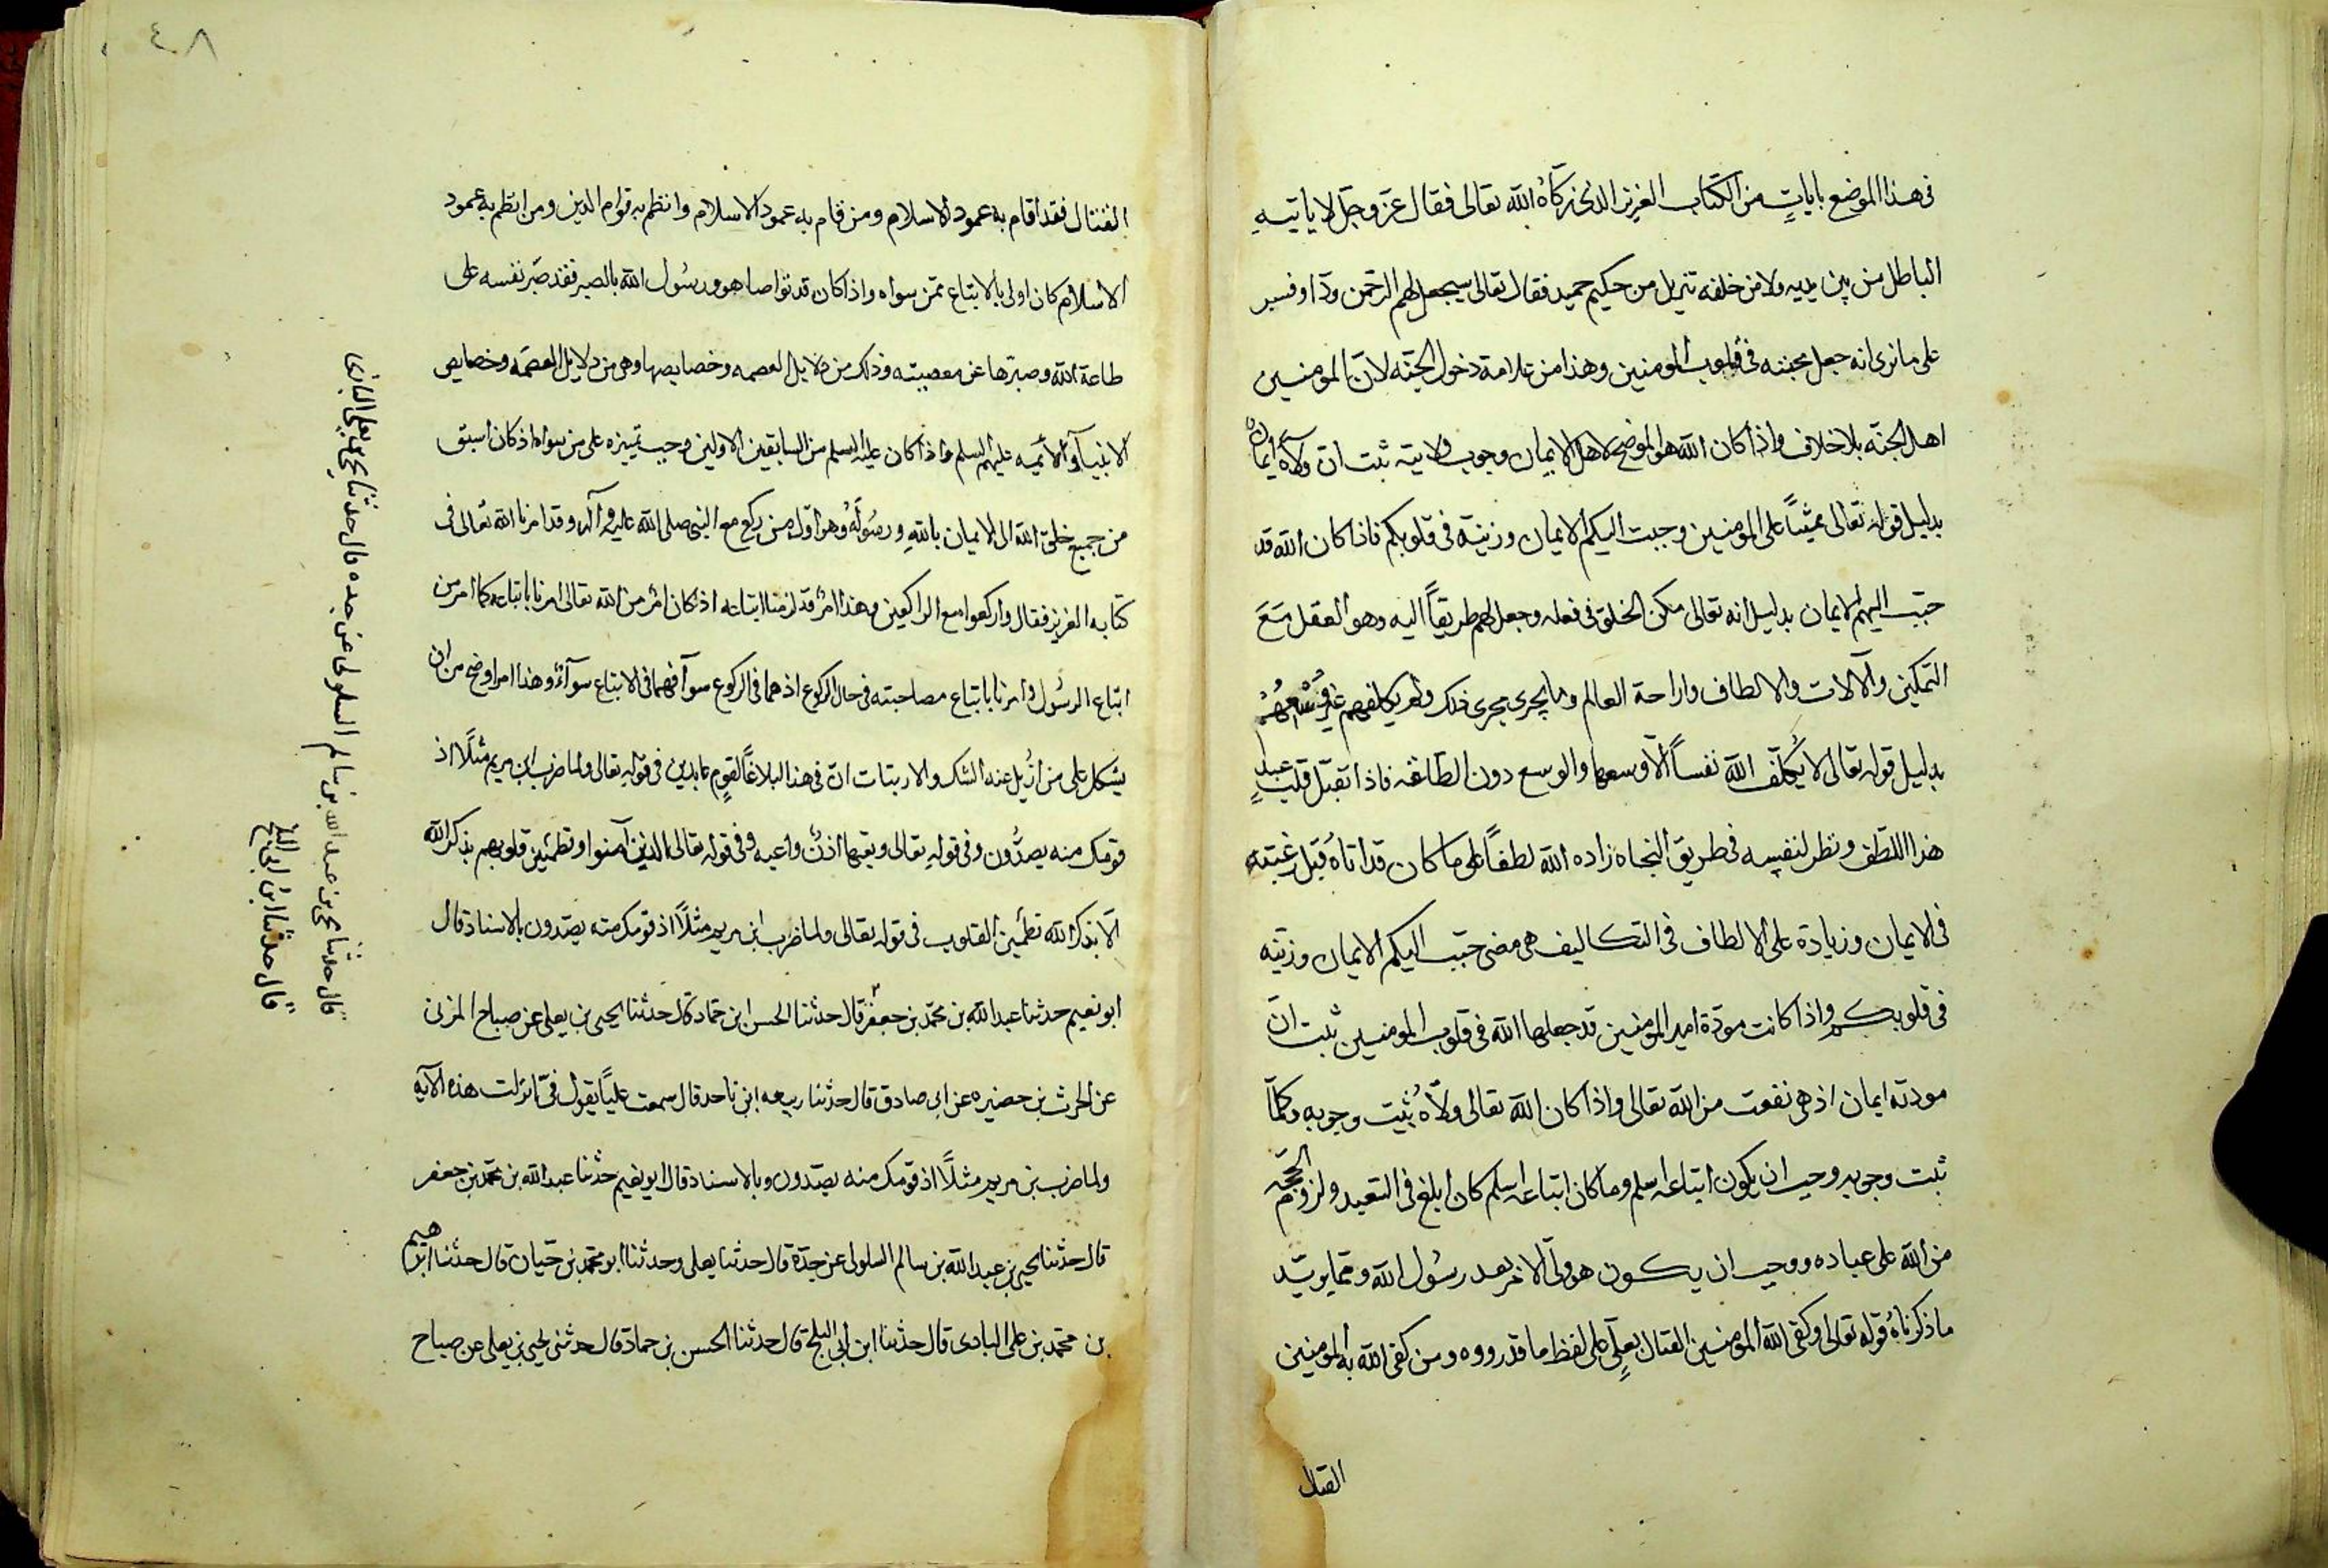 فى هذا الموضع بايات من الكتاب العزيز الذى زكاه الله تعالى فقال عز وجل لا ياتيه
الباطل من بين يديه ولا من خلفه تنزيل من حكيم حميد فقال تعالى سيجعل لهم الرحمن ودا وفسر
على ما ترى انه جعل محبته فى قلوب المومنين وهذا من علامة دخول الجنة لان المومنين
اهل الجنة بلا خلاف واذا كان الله هو الموضح لاهل الايمان وجوب ولايته ثبت ان ولاه ايمان
بدليل قوله تعالى على المومنين وحببت اليكم الايمان وزينه فى قلوبكم فاذا كان الله قد
حبب اليهم الايمان بدليل انه تعالى مكن الخلق فى فعله وجعل لهم طريقاً اليه وهو العقل مَعَ
التمكين والآلات والالطاف وازاحة العالم وما يجرى مجرى ذلك ولم يكلفهم غير وُسْعِهُمْ
بدليل قوله تعالى لا يُكلّف الله نفساً الّا وسعها والوسع دون الطاقة فاذا تقبّل قلب عبدٍ
هذا اللطف ونظر لنفسه فى طريق النجاه زاده الله لطفاً على ما كان قد اتاه قبل رغبته
فى الايمان وزيادة على الالطاف فى التكاليف هى مضى حبّب اليكم الايمان وزيّنه
فى قلوبكم واذا كانت مودّة امير المومنين قد جعلها الله فى قلوب المومنين ثبت انّ
مودته ايمان اذ هى نفعت من الله تعالى واذا كان الله تعالى ولّاه ثبت وجوبه وكلّما
ثبت وجوبه وجب ان يكون اتباعه اسلم وما كان اتباعه اسلم كان ابلغ فى التعبد ولزوم الحجّة
من الله على عباده ووجب ان يكون هو ولىّ الامر بعد رسول الله وممّا يويّد
ما ذكرناه قوله تعالى وكفى الله المومنين القتال بعلىٍّ على لفظ ما قد رووه ومن كفى الله به المومنين
القتال
٤٠٨
القتال فقد اقام به عمود الاسلام ومن قام به عمود الاسلام وانتظم به قوام الدين ومن انتظم به عمود
الاسلام كان اولى بالاتباع ممّن سواه واذا كان قد تواصا هو ورسول الله بالصبر فقد صبّر نفسه على
طاعة الله وصبّرها عن معصيته وذلك من دلايل العصمه وخصايصها وهى من دلايل العصمه وخصايص
الانبيآء والائمّه عليهم السلم واذا كان عليه السلم من السابقين الاولين وجب تمييزه على من سواه اذ كان اسبق
من جميع خلق الله الى الايمان بالله ورسوله وهو اوّل من ركع مع النبى صلى الله عليه وآله وقد امرنا الله تعالى فى
كتابه العزيز فقال واركعوا مع الراكعين وهذا امر قد لزمنا اتباعه اذ كان امر من الله تعالى امرنا باتباعه كما امر من
اتباع الرسول وامرنا باتباع مصاحبته فى حال الركوع اذ هما فى الركوع سوآ فهما فى الاتباع سوآء وهذا امر اوضح من ان
يشكل على من ازيل عنه الشك والارتياب انّ فى هذا البلاغاً لقومٍ عابدين فى قوله تعالى ولما ضرب ابن مريم مثلاً اذ
قومك منه يصدّون وفى قوله تعالى وتعيها اذنٌ واعيه وفى قوله تعالى الذين آمنوا وتطمئن قلوبهم بذكر الله
الا بذكر الله تطمئن القلوب فى قوله تعالى ولما ضرب ابن مريم مثلاً اذ قومك منه يصدّون بالاسناد قال
ابو نعيم حدثنا عبد الله بن محمّد بن جعفر قال حدثنا الحسن ابن حماد قال حدثنا يحيى بن يعلى عن صباح المزنى
عن الحرث بن حصيره عن ابى صادق قال حدثنا ربيعه ابن ناجد قال سمعت عليّاً يقول فىّ انزلت هذه الآية
ولما ضرب بن مريم مثلاً اذ قومك منه يصّدون وبالاسناد قال ابو نعيم حدثنا عبد الله بن محمّد بن جعفر
قال حدثنا يحيى بن عبد الله بن سالم السلولى عن جدّه قال حدثنا يعلى وحدثنا ابو محمد بن حيان قال حدثنا ابراهيم
بن محمّد بن على البادى قال حدثنا ابن أبى البلح قال حدثنا الحسن بن حماد قال حدثنى يحيى بن يعلى عن صباح
قال حدثنا يحيى بن عبد الله بن سالم السلولى عن جده قال حدثنا يحيى بن يعلى البادى
قال حدثنا ابن ابى البلح